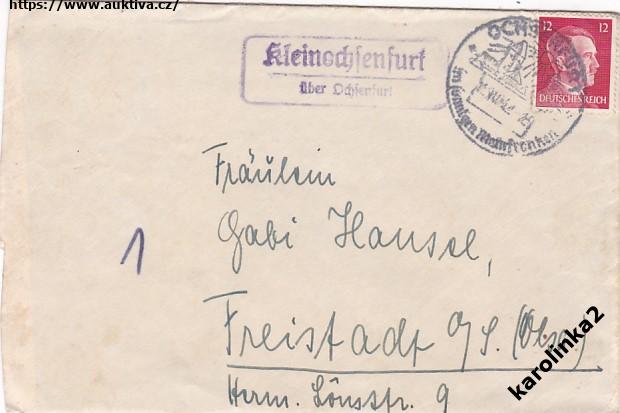 https://www.auktiva.cz/
Kleinochsenfurt
über Ochsenfurt
OCHSENFURT
im sonnigen Mainfranken
12 12
DEUTSCHES REICH
Fräulein
Gabi Hansel,
1
Freistadt O/S. (Olsa)
Herm. Lönsstr. 9
karolinka2